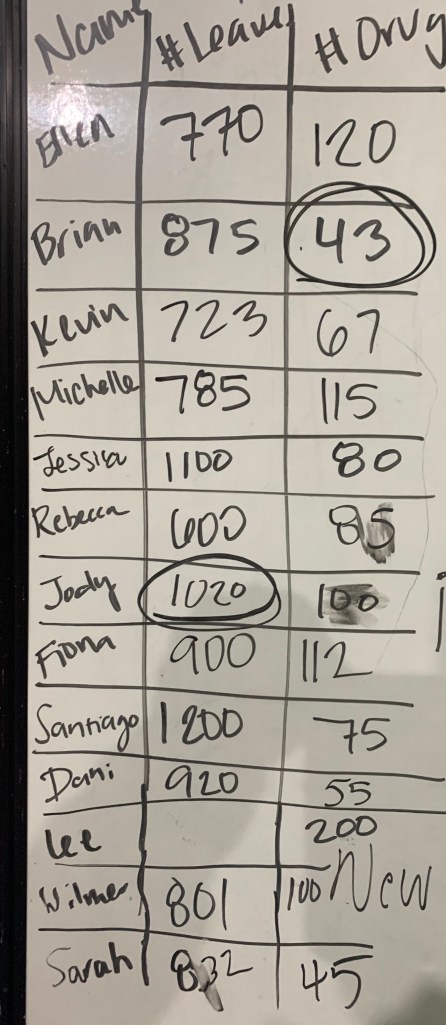 Name #Leaves #Drug
Ellen 770 120
Brian 875 43
Kevin 723 67
Michelle 785 115
Jessica 1100 80
Rebecca 600 85
Jody 1020 100
Fiona 900 112
Santiago 1200 75
Dani 920 55
Lee 200
Wilmer 801 100 New
Sarah 832 45